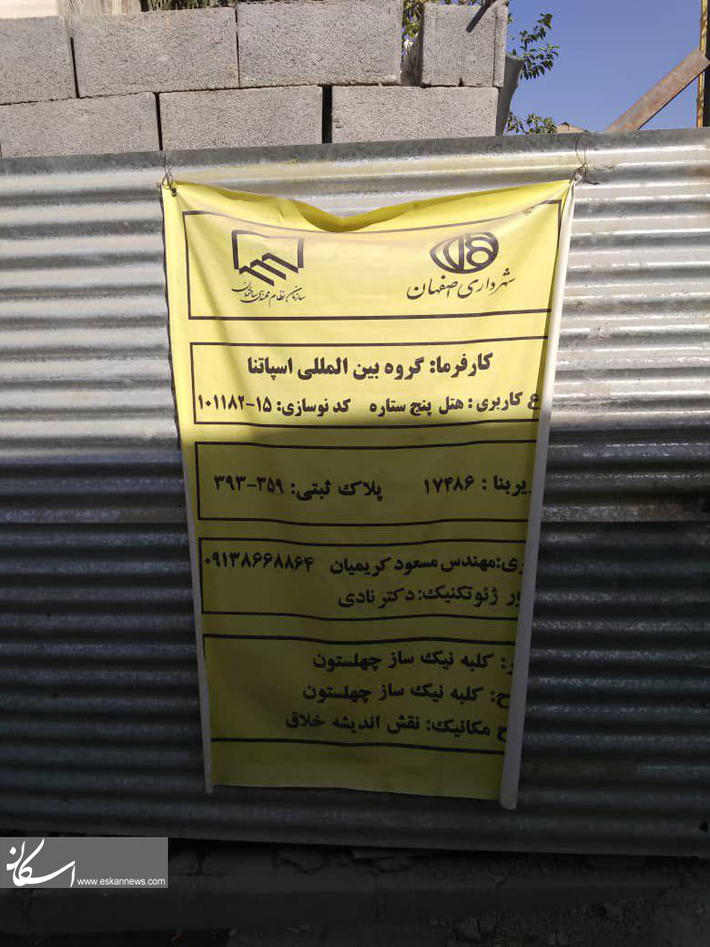 شهرداری اصفهان
سازمان نظام مهندسی ساختمان
کارفرما: گروه بین المللی اسپاتنا
ع کاربری : هتل پنج ستاره کد نوسازی: ۱۵-۱۰۱۱۸۲
یربنا : ۱۷۴۸۶ پلاک ثبتی: ۳۵۹-۳۹۳
ری:مهندس مسعود کریمیان ۰۹۱۳۸۶۶۸۸۶۴
ور ژئوتکنیک: دکتر نادی
ر: کلبه نیک ساز چهلستون
ح: کلبه نیک ساز چهلستون
ح مکانیک: نقش اندیشه خلاق
اسکان
www.eskannews.com